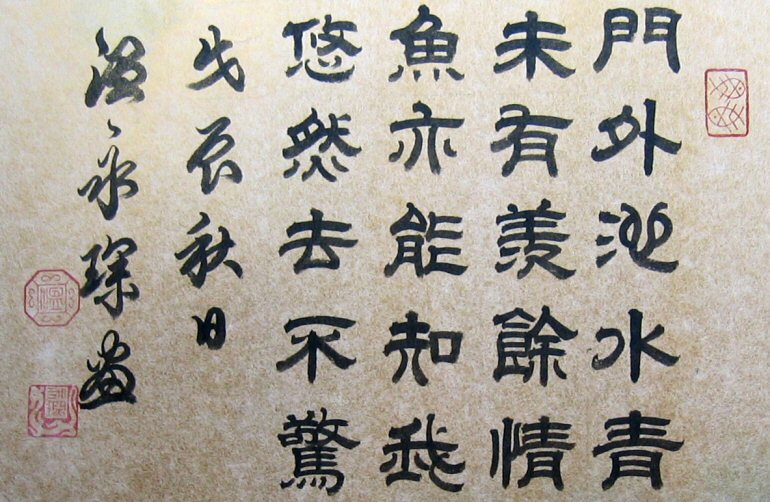 門外池水青
未有羨餘情
魚亦能知我
悠然去不驚
戊辰秋日
溫永琛畫